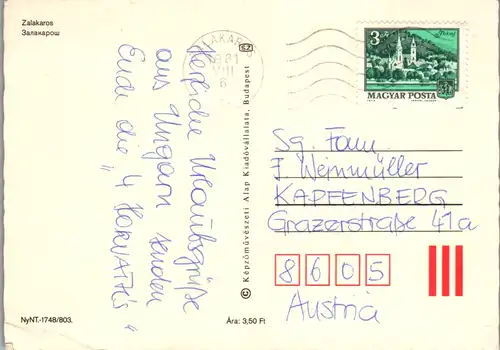 Zalakaros
Залакарош
Herzliche Urlaubsgrüße
aus Ungarn senden
Euch die "4 HORVATHS"
NyNT.-1748/803.
Ára: 3,50 Ft
© Képzőművészeti Alap Kiadóvállalata, Budapest
ZALAKAROS
981
VIII
6
3 Ft
MAGYAR POSTA
Sg. Fam.
F. Weinmüller
KAPFENBERG
Grazerstraße 41a
8605
Austria